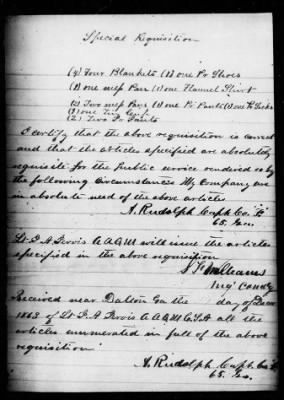 Special Requisition
(4) Four Blankets (1) one Pr Shoes
(1) one mess Pan (1) one Flannel Shirt
(2) Two mess Pans (1) one Pr Pants (1) one Pr Socks
(1) one Tin
(2) Two Pr Pants
I certify that the above requisition is correct
and that the articles specified are absolutely
requisite for the public service rendered so by
the following Circumstances My Company are
in absolute need of the above articles
A. Rudolph Capt. Co.
65. Ga.
Lt. A A Q M will issue the articles
specified in the above requisition
Williams
Comdg
Received near Dalton Ga the day of Decr
1863 of Lt. A A Q M C.S.A all the
articles enumerated in full of the above
requisition
A. Rudolph Capt. Co.
65. Ga.